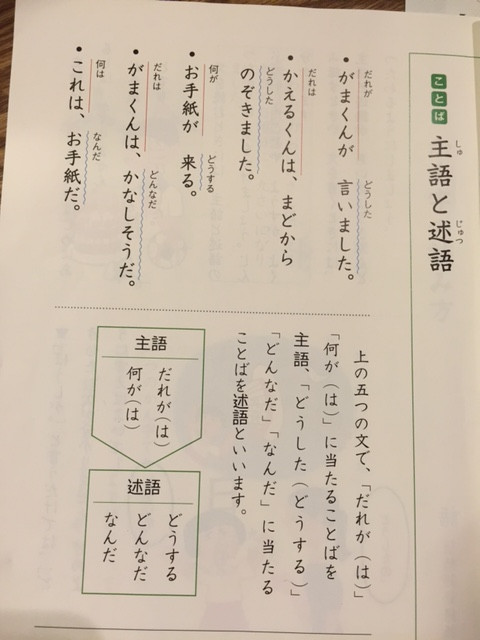 ことば
主語と述語
しゅ
じゅつ
だれが
どうした
・がまくんが 言いました。
だれは
・かえるくんは、まどから
どうした
のぞきました。
何が
どうする
・お手紙が 来る。
だれは
どんなだ
・がまくんは、かなしそうだ。
何は
なんだ
・これは、お手紙だ。
上の五つの文で、「だれが(は)」
「何が(は)」に当たることばを
主語、「どうした(どうする)」
「どんなだ」「なんだ」に当たる
ことばを述語といいます。
主語
だれが(は)
何が(は)
述語
どうする
どんなだ
なんだ